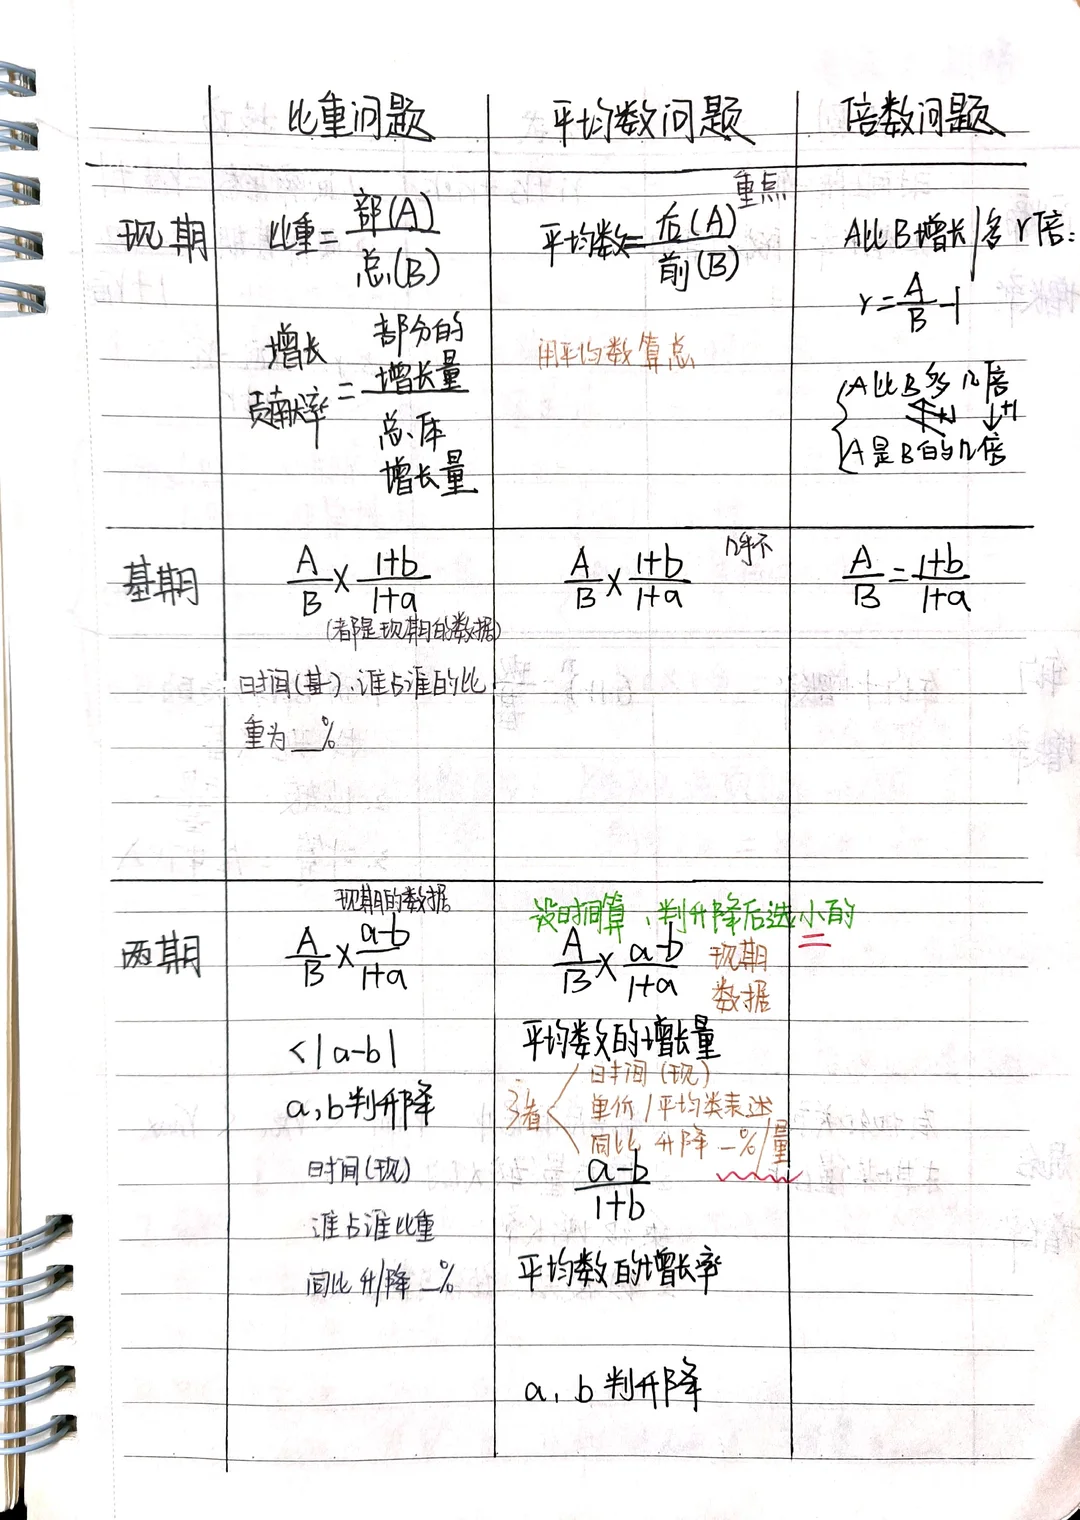 比重问题 平均数问题 倍数问题
现期
比重=部(A)/总(B)
增长贡献率=部分的增长量/总体增长量
重点
平均数=后(A)/前(B)
用平均数算总
A比B增长/多r倍:
r=A/B-1
A比B多几倍
+1
A是B的几倍
基期
A/B×(1+b)/(1+a)
(都是现期的数据)
时间(基)、谁占谁的比
重为__%
几乎不
A/B×(1+b)/(1+a)
A/B=(1+b)/(1+a)
两期
现期的数据
A/B×(a-b)/(1+a)
<|a-b|
a,b判升降
时间(现)
谁占谁比重
同比升/降_%
没时间算、判升降后选小的
A/B×(a-b)/(1+a)
现期
数据
平均数的增长量
3者
时间(现)
单价/平均类表述
同比升降_%/量
(a-b)/(1+b)
平均数的增长率
a,b判升降